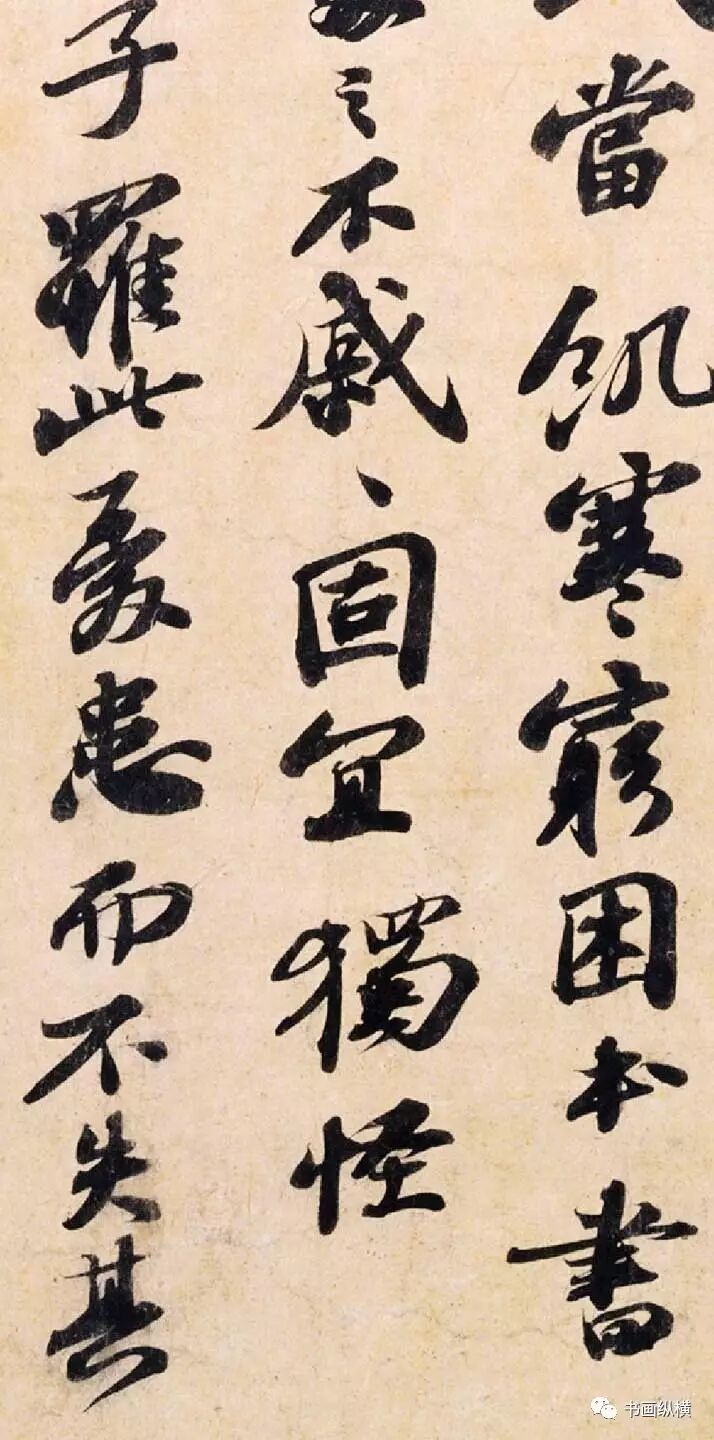 當飢寒窮困本書
之不戚、固宜獨怪
子羅此憂患而不失其
书画纵横